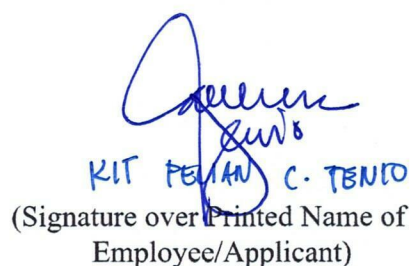 KIT C. TENIO
(Signature over Printed Name of
Employee/Applicant)